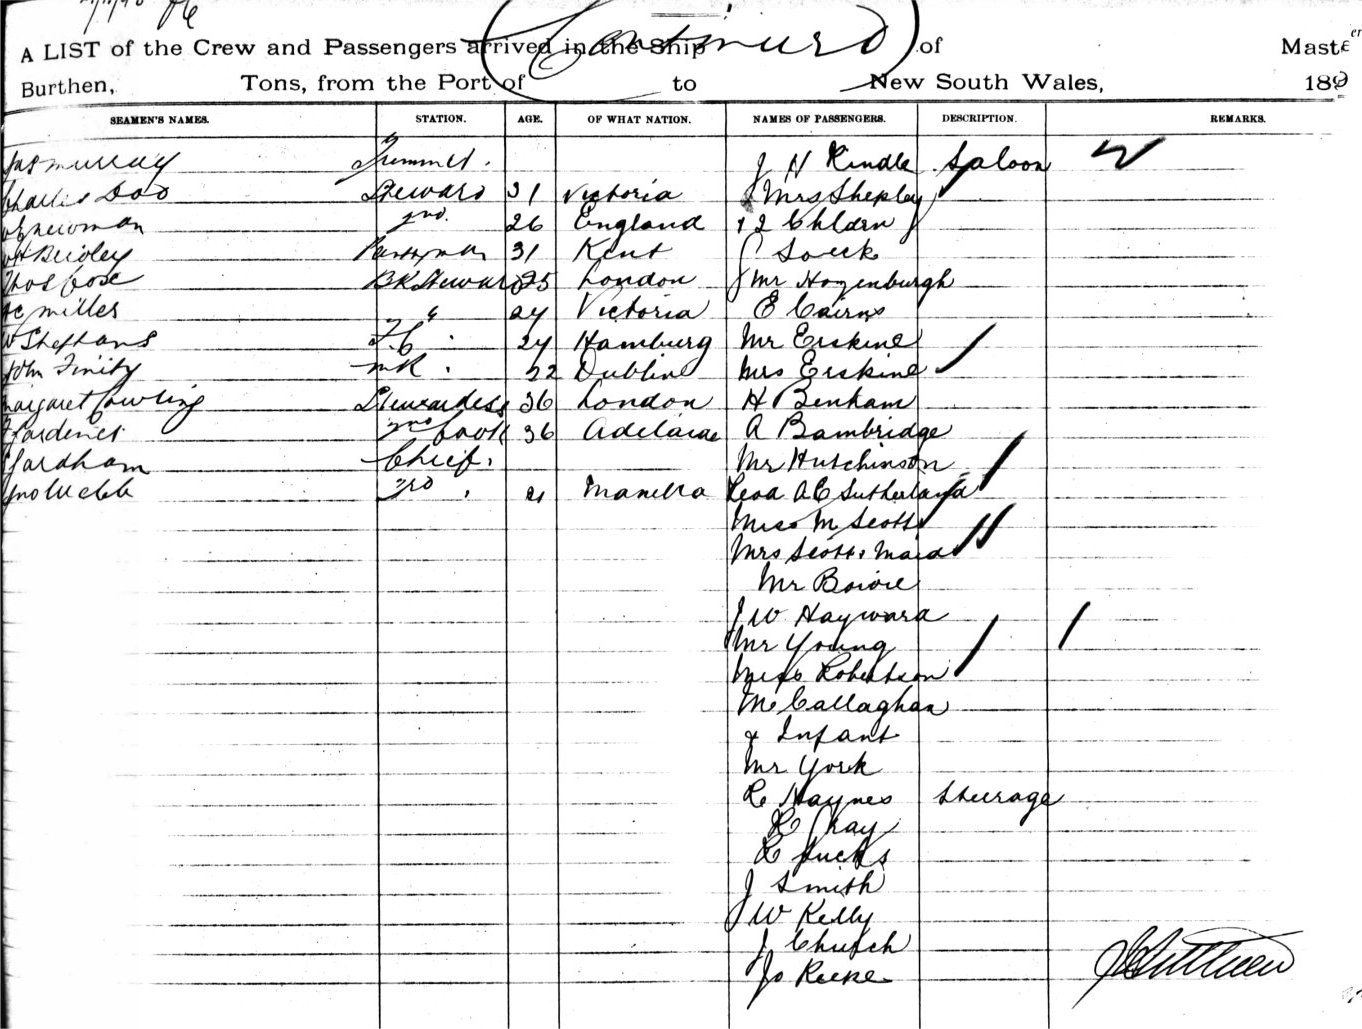 A LIST of the Crew and Passengers arrived in the Ship Continued of Master
Burthen, Tons, from the Port of to New South Wales, 189
SEAMEN'S NAMES. STATION. AGE. OF WHAT NATION. NAMES OF PASSENGERS. DESCRIPTION. REMARKS.
Jas Murray Trimmer. J H Rindle Saloon
Charlie Dod Steward 31 Victoria Mrs Shepley
Newman 2nd. 26 England & 2 Chldrn
Bridley Pantryman 31 Kent J Soeck
Thos Cose BK Steward 25 London J Mr Hogenburgh
Miller " 24 Victoria E Cairns
W Stephans F.C. 24 Hamburg Mr Erskine
John Finity MR. 22 Dublin Mrs Erskine
Margaret Cowling Stewardess 36 London H Benham
Gardener 2nd Cook 36 Adelaide A Bambridge
Yardham Chief. Mr Hutchinson
Jno Webb 3rd. 21 Manilla A C Sutherland
Miss M Scott
Mrs Scotts Maid
Mr Bowie
J W Hayward
Mr Young
Miss Robertson
Mc Callaghan
& Infant
Mr York
R Haynes Steerage
R Gray
R Jucks
J Smith
J W Kelly
J Church
Jo Reeke